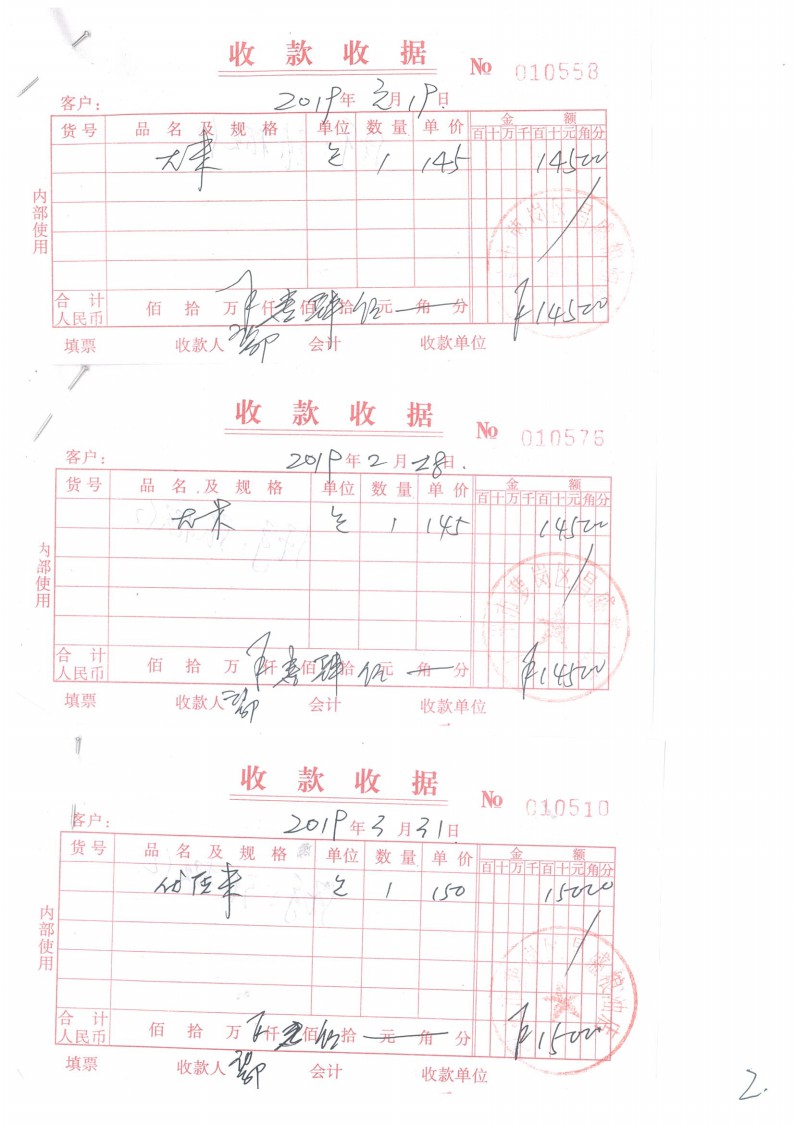 收款收据
№ 010558
客户: 2019年2月19日
货号 品名及规格 单位 数量 单价 金额
百十万千百十元角分
大米 1 145 14500
内部使用
合计人民币 佰拾万仟壹佰肆拾伍元角分 ¥14500
填票 收款人 会计 收款单位
收款收据
№ 010576
客户: 2019年2月28日.
货号 品名及规格 单位 数量 单价 金额
百十万千百十元角分
大米 1 145 14500
内部使用
合计人民币 佰拾万仟壹佰肆拾伍元角分 ¥14500
填票 收款人 会计 收款单位
收款收据
№ 010510
客户: 2019年3月31日
货号 品名及规格 单位 数量 单价 金额
百十万千百十元角分
米 1 150 15000
内部使用
合计人民币 佰拾万仟壹佰伍拾元角分 ¥15000
填票 收款人 会计 收款单位
2.